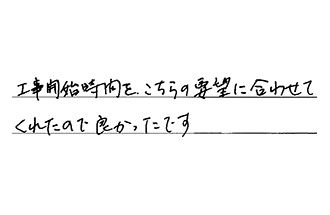 工事開始時間を、こちらの要望に合わせて
くれたので良かったです